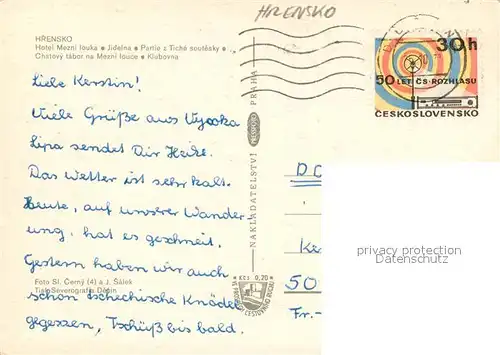 HŘENSKO
HŘENSKO
Hotel Mezní louka • Jídelna • Partie z Tiché soutěsky •
Chatový tábor na Mezní louce • Klubovna
30h
50 LET ČS. ROZHLASU
ČESKOSLOVENSKO
Liebe Kerstin!
Viele Grüße aus Vysoka
Lipa sendet Dir Heike.
Das Wetter ist sehr kalt.
Heute, auf unserer Wander
ung, hat es geschneit.
Gestern haben wir auch
schon tschechische Knödel
gegessen, Tschüß bis bald.
Foto Sl. Černý (4) a J. Šálek
Tisk Severografia Děčín
NAKLADATELSTVÍ PRESSFOTO PRAHA
Kčs 0,20
VE PROSPĚCH CESTOVNÍHO RUCHU
Ke
50
Fr.-
privacy protection
for Collectors